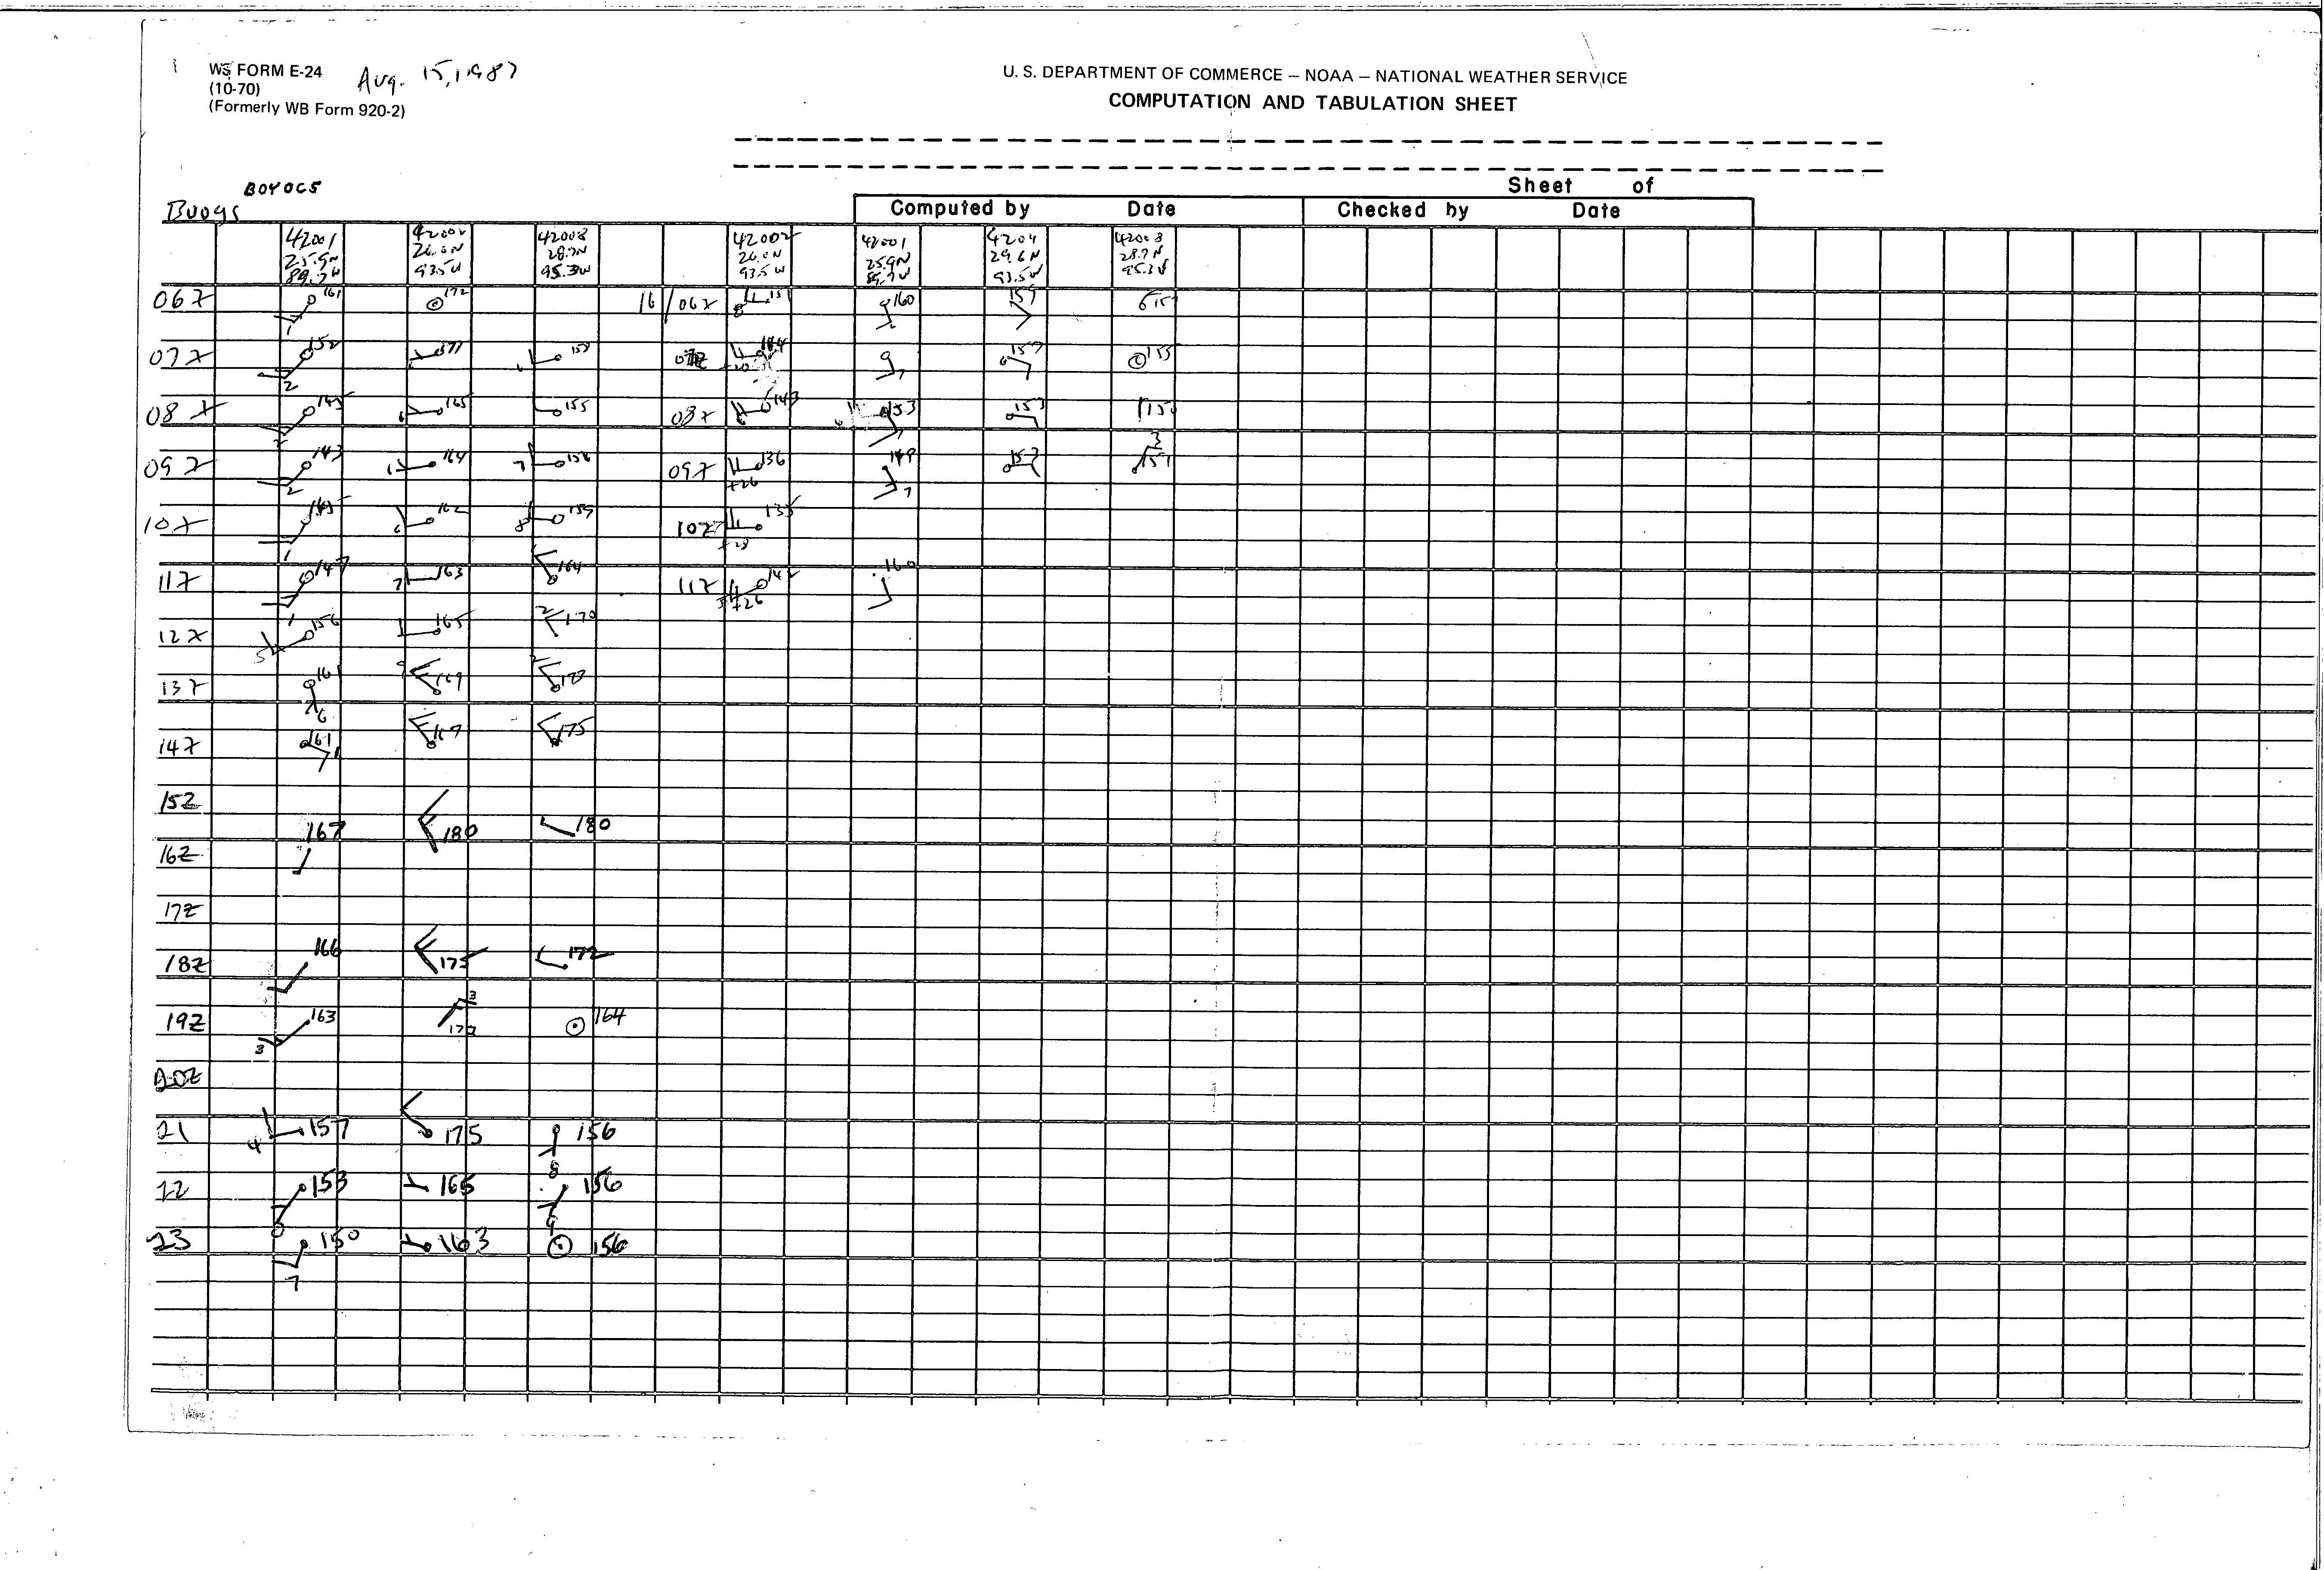 WS FORM E-24 Aug. 15, 1987 U. S. DEPARTMENT OF COMMERCE – NOAA – NATIONAL WEATHER SERVICE
(10-70)
(Formerly WB Form 920-2) COMPUTATION AND TABULATION SHEET
Sheet of
BOYOCS
Buoys Computed by Date Checked by Date
42001 42002 42008 42002 42001 4204 42008
25.9N 26.0N 28.7N 26.0N 25.9N 29.6N 28.7N
89.7W 93.5W 95.3W 93.5W 89.7W 93.5W 95.3W
06Z 161 172 16/06Z 151 160 159
1
07Z 152 171 157 155
2
08Z 145 165 155 08Z 143 153 153
09Z 143 164 7 09Z 136 149 157 3 151
2 +26 7
10Z 6 162 8 153 10Z 135
1 +28
11Z 147 7 163 164 11Z 142 160
1 +26
12Z 156 165 2 170
5
13Z 161 9 169 2
6
14Z 161 167 175
15Z
167 180 180
16Z
17Z
18Z 166 175 172
19Z 163 3 164
3
20Z
21 157 175 156
4 8
22 153 165 156
23 150 163 156
7